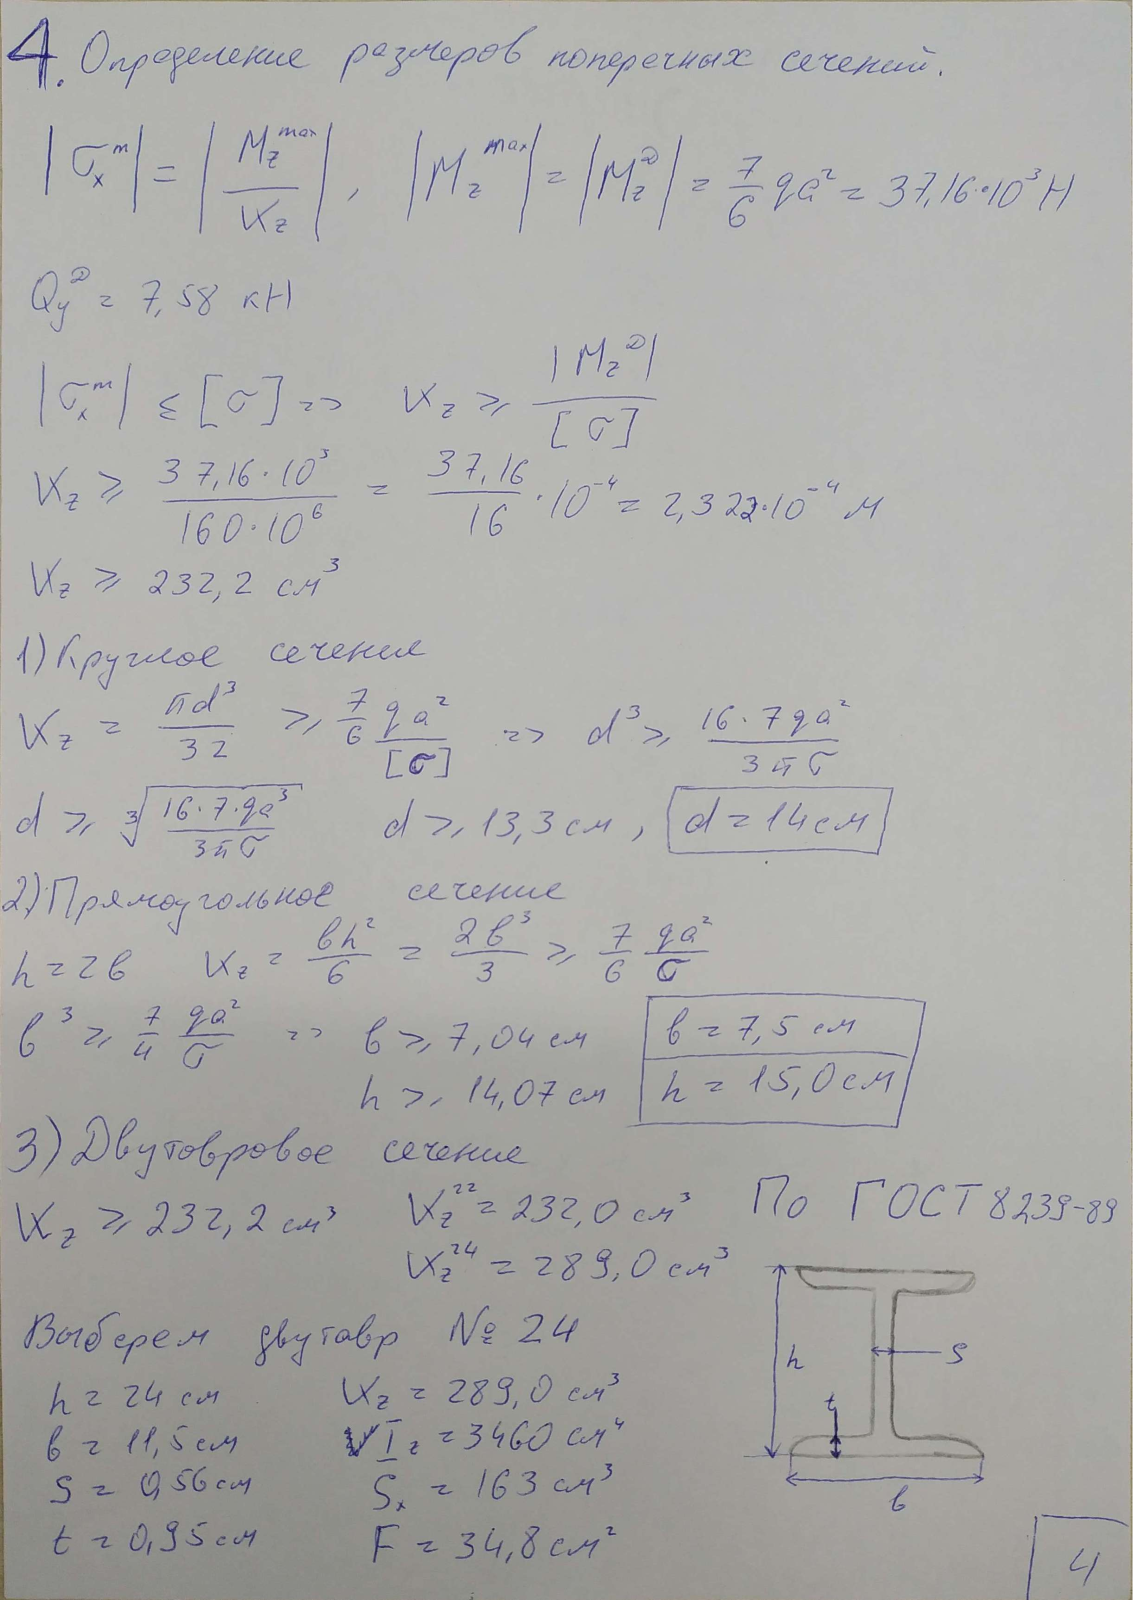 4. Определение размеров поперечных сечений.
|σₓᵐ| = |M_z^max / W_z|, |M_z^max| = |M_z^D| = 7/6 qa² = 37,16·10³ Н
Q_y^D = 7,58 кН
|σₓᵐ| ≤ [σ] => W_z ≥ |M_z^D| / [σ]
W_z ≥ 37,16·10³ / 160·10⁶ = 37,16/16 ·10⁻⁴ = 2,322·10⁻⁴ м
W_z ≥ 232,2 см³
1) Круглое сечение
W_z = πd³/32 ≥ 7/6 qa²/[σ] => d³ ≥ 16·7qa²/3πσ
d ≥ ³√(16·7·qa³/3πσ) d ≥ 13,3 см, d = 14 см
2) Прямоугольное сечение
h = 2b W_z = bh²/6 = 2b³/3 ≥ 7/6 qa²/σ
b³ ≥ 7/4 qa²/σ => b ≥ 7,04 см b = 7,5 см
h ≥ 14,07 см h = 15,0 см
3) Двутовровое сечение
W_z ≥ 232,2 см³ W_z²² = 232,0 см³ По ГОСТ 8239-89
W_z²⁴ = 289,0 см³
Выберем двутавр № 24
h = 24 см W_z = 289,0 см³
b = 11,5 см I_z = 3460 см⁴
S = 0,56 см Sₓ = 163 см³
t = 0,95 см F = 34,8 см²
h
S
t
b
4